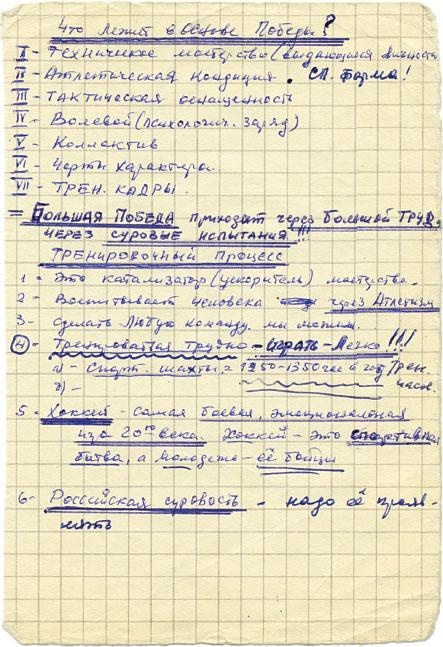 Что лежит в основе Победы?
I - Техническое мастерство (выдающаяся личность
II - Атлетическая кондиция. Сп. форма!
III - Тактическая оснащенность
IV - Волевой (психологич. заряд)
V - Коллектив
VI - Черты характера.
VII - Трен. кадры.
= Большая Победа приходит через большой труд,
через суровые испытания!!!
Тренировочный процесс
1 - Это катализатор (ускоритель) мастерства.
2 - Воспитывает человека через Атлетизм
3 - Сделать любую команду мы можем.
4 - Тренироваться трудно - играть - легко!!!
а) - Спорт. шахты = 1250-1350 час в год Трен.
часов.
2) -
5 - Хоккей - самая боевая, эмоциональная
игра 20го века. Хоккей - это спортивная
битва, а молодежь - её бойцы
6 - Российская суровость - надо её прояв-
лять